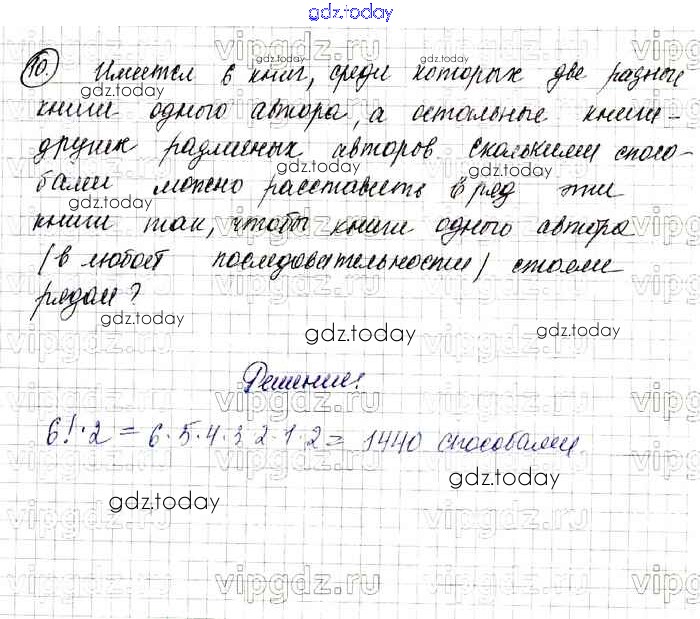 gdz.today
10. Имеется 6 книг, среди которых две разные
книги одного автора, а остальные книги -
других различных авторов Сколькими спосо-
бами можно расставить в ряд эти
книги так, чтобы книги одного автора
/в любой последовательности/ стояли
рядом?
Решение:
6!·2 = 6·5·4·3·2·1·2 = 1440 способами.
vipgdz.ru
gdz.today